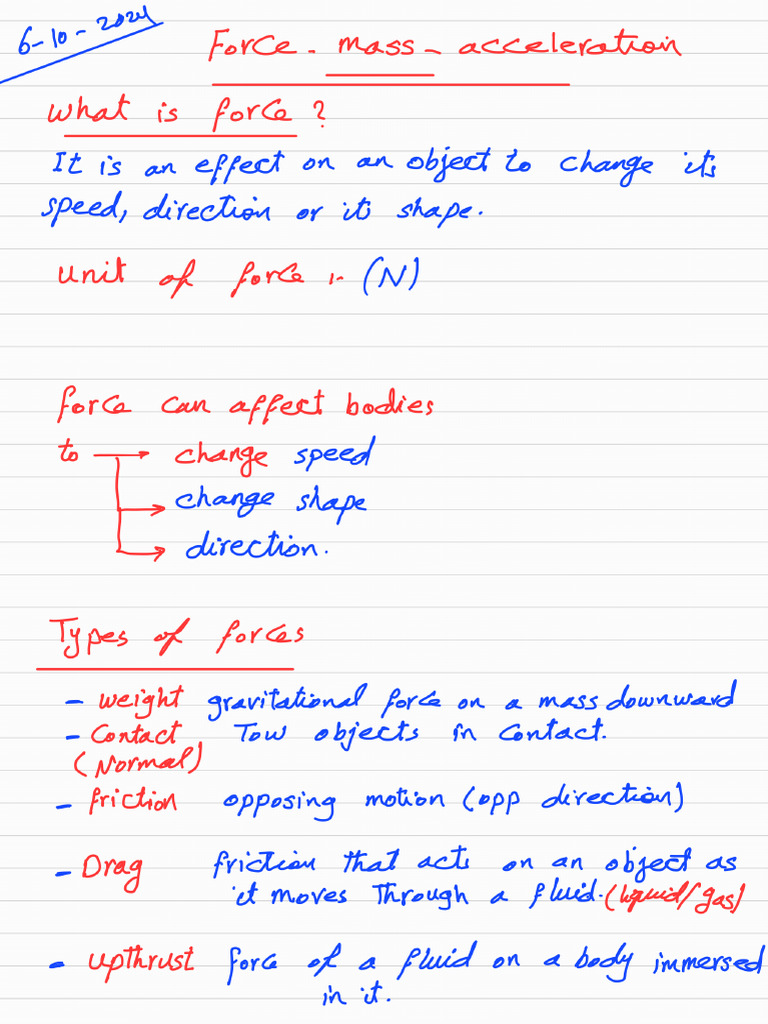 6-10-2024
Force - mass - acceleration
what is force ?
It is an effect on an object to change its
speed, direction or its shape.
unit of force :- (N)
force can affect bodies
to → change speed
→ change shape
→ direction.
Types of forces
- weight gravitational force on a mass downward
- Contact Tow objects in contact.
(Normal)
- friction opposing motion (opp direction)
- Drag friction that acts on an object as
it moves Through a fluid. (liquid/gas)
- upthrust force of a fluid on a body immersed
in it.